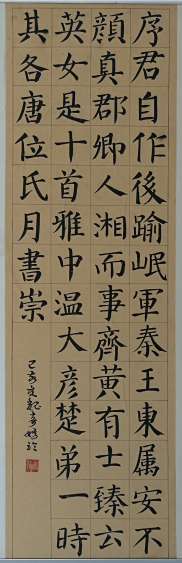 序君自作後踰岷軍秦王東属安不
顔真郡卿人湘而事齊黄有士臻六
英女是十首雅中温大彦楚弟一時
其各唐位氏月書崇
己亥